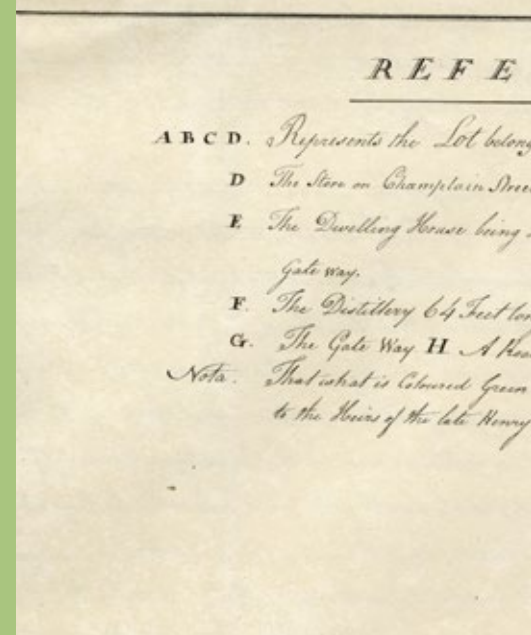 REFE
A B C D. Represents the Lot belong
D The Store on Champlain Stree
E The Dwelling House being
Gate way.
F. The Distillery 64 Feet lon
G. The Gate Way H A
Nota. That what is Coloured Green
to the Heirs of the late Henry